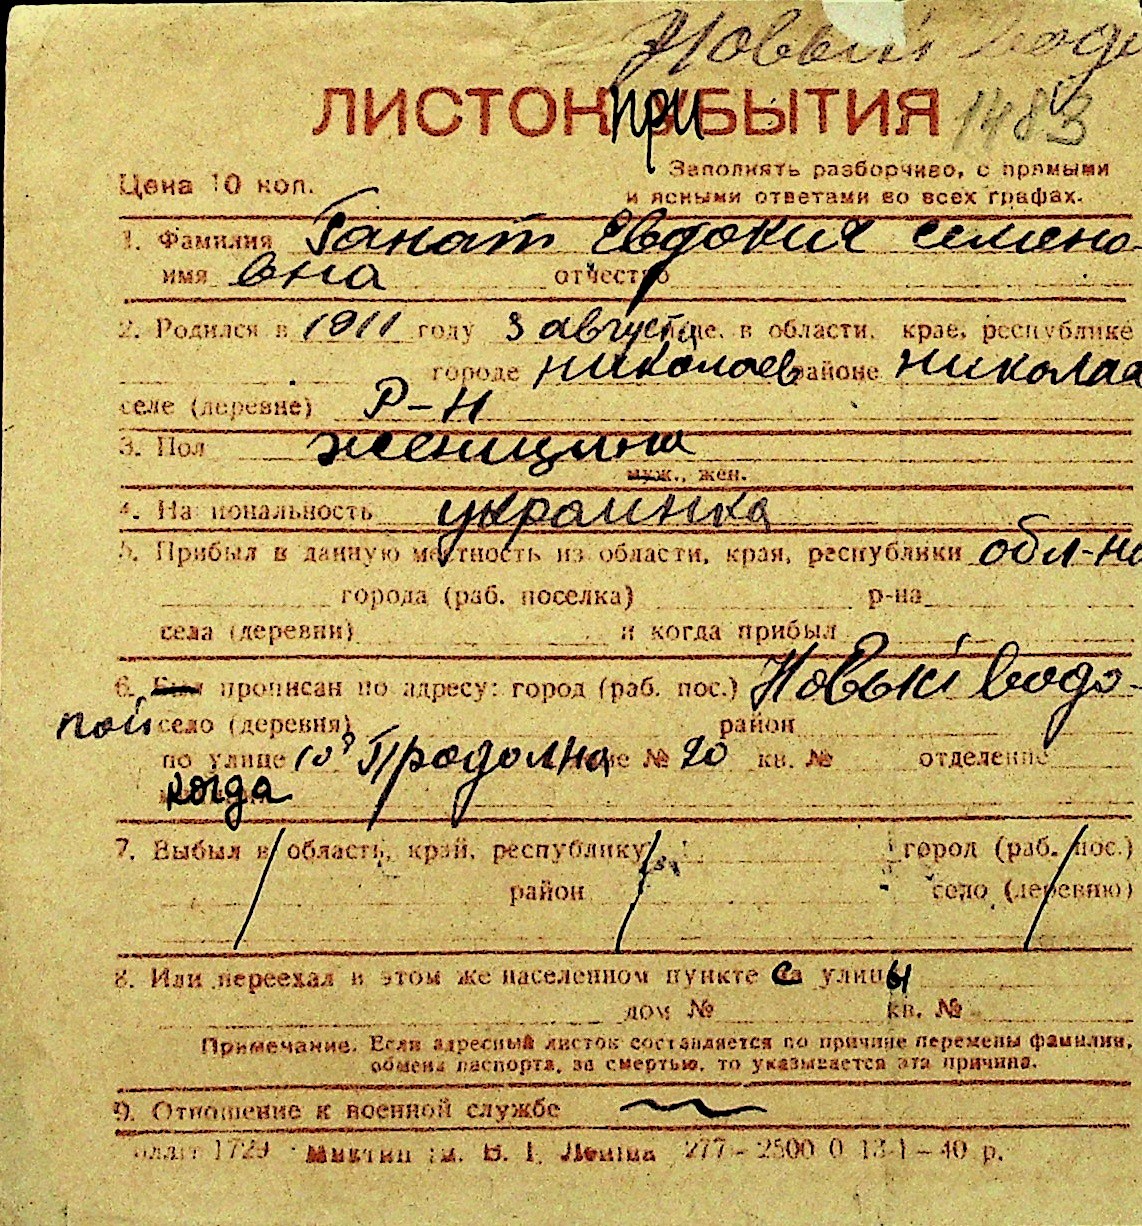 Новый водо
ЛИСТОК ПРИБЫТИЯ 1483
Цена 10 коп.
Заполнять разборчиво, с прямыми
и ясными ответами во всех графах.
1. Фамилия Ганат Евдокия семено
имя вна отчество
2. Родился в 1911 году 3 августа в области, крае, республике
городе николаев районе николаев
селе (деревне) Р-Н
3. Пол женищина
муж., жен.
4. Национальность украинка
5. Прибыл в данную местность из области, края, республики обл-но
города (раб. поселка) р-на
села (деревни) и когда прибыл
6. Был прописан по адресу: город (раб. пос.) Новый водо-
пой село (деревня) район
по улице 10я Продолна № 20 кв. № отделение
когда
7. Выбыл в область, край, республику город (раб. пос.)
район село (деревню)
8. Или переехал в этом же населенном пункте са улицы
дом № кв. №
Примечание. Если адресный листок составляется по причине перемены фамилии,
обмена паспорта, за смертью, то указывается эта причина.
9. Отношение к военной службе
1729 В. І. Леніна 277 - 2500 0 13-1 - 40 р.